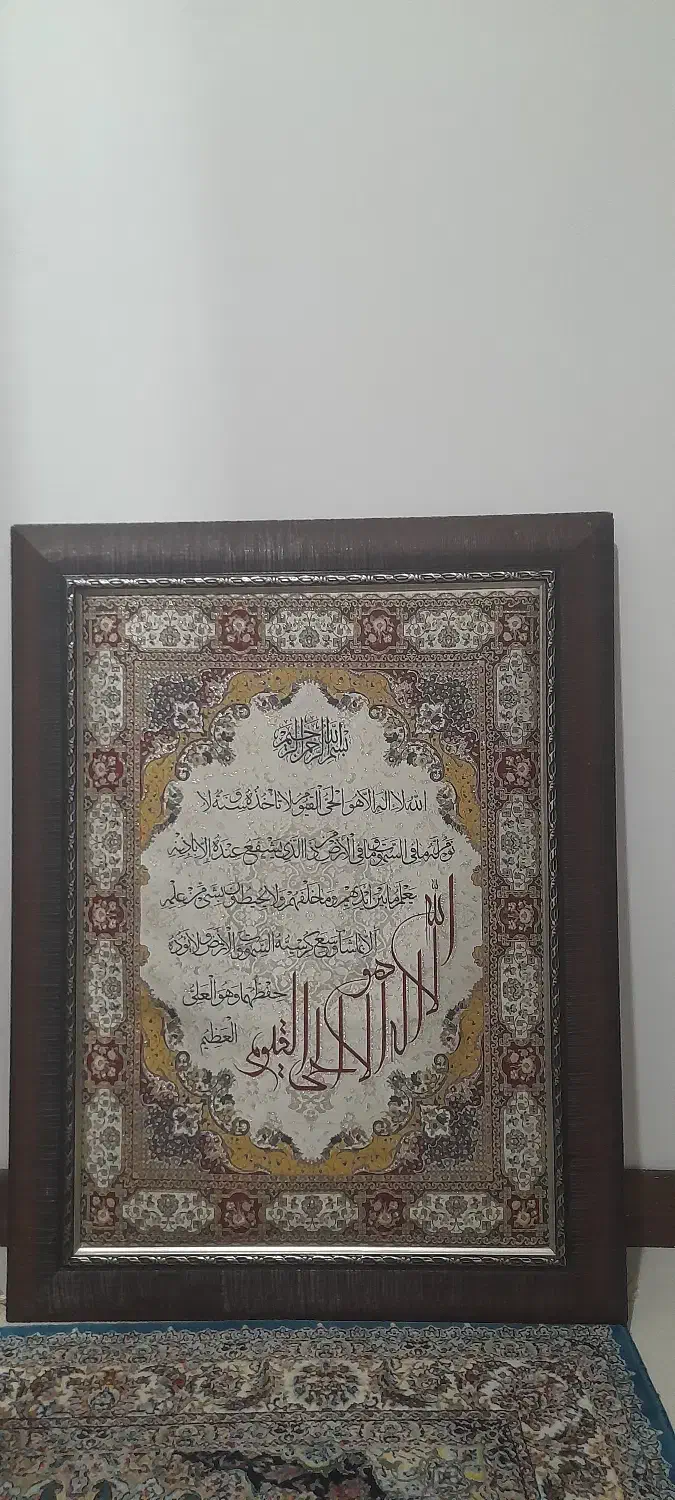 بسم الله الرحمن الرحيم
الله لا اله الا هو الحي القيوم لا تاخذه سنة ولا
نوم له ما في السموت وما في الارض من ذا الذي يشفع عنده الا باذنه
يعلم ما بين ايديهم وما خلفهم ولا يحيطون بشيء من علمه
الا بما شاء وسع كرسيه السموت والارض ولا يؤده
حفظهما وهو العلي
العظيم
الله لا اله الا هو الحي القيوم